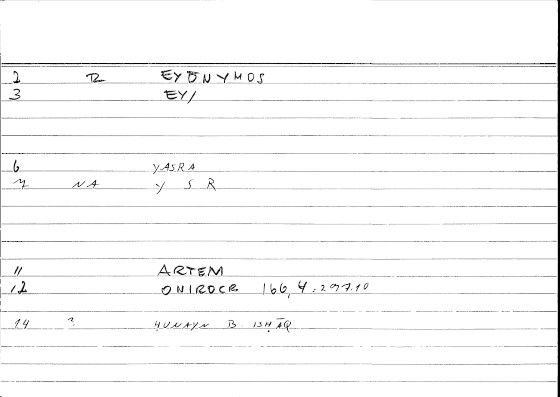 2 12 EYŌNYMOS
3 EY/
6 YASRA
7 NA Y S R
11 ARTEM
12 ONIROCR 166,4:297.10
14 ? ḤUNAYN B. ISḤĀQ